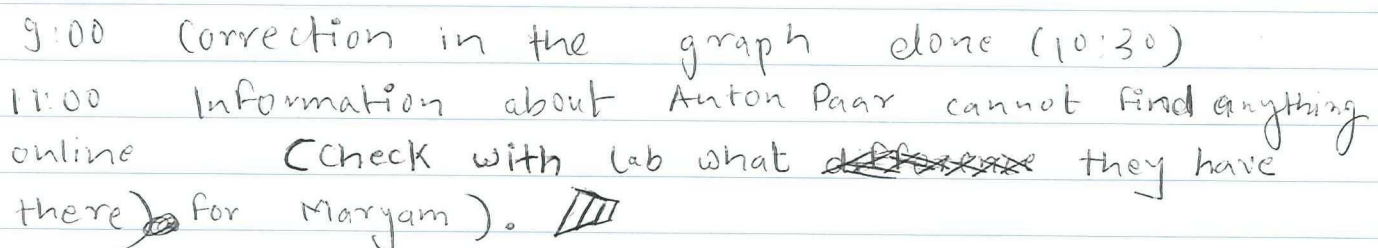 9:00 Correction in the graph done (10:30)
11:00 Information about Anton Paar cannot find anything
online (Check with lab what they have
there) for Maryam).